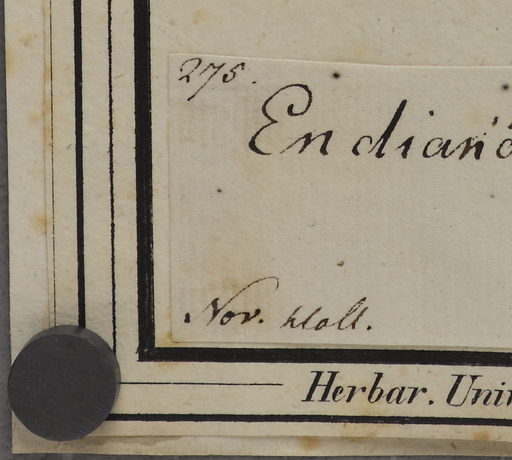 275.
Endian
Nov. Holl.
Herbar. Univ